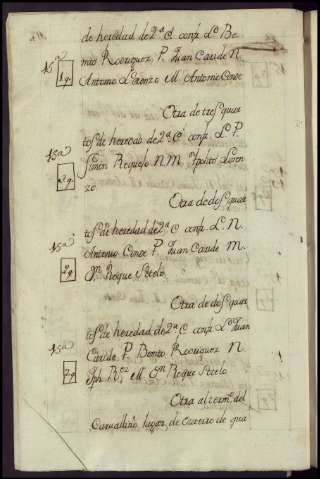 de heredad de 2ª Cd conf. L. Be
nito Rodriguez P. Juan Caride N.
Antonio Lorenzo M. Antonio Conde
Otra de tres quar
tos de heredad de 2ª Cd conf. L. P.
Simon N. M. Ypolito Loren
zo
Otra de dos quar
tos de heredad de 2ª Cd conf. L. N.
Antonio Conde P. Juan Caride M.
Dn Roque Sotelo
Otra de dos quar
tos de heredad de 2ª Cd conf. L. Juan
Caride P. Benito Rodriguez N.
Jph M. Dn Roque Sotelo
Otra al term. del
Carvalliño, lugar, de de qua